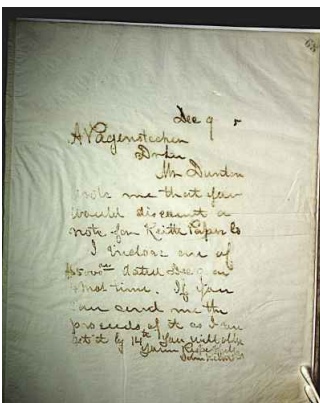 68
Dec 9
A Pagenstecher
Dr Sir
Mr Dunton
wrote me that you
would discount a
note for Keith Paper Co
I inclose one of
$5000 00 dated Dec 9 on
4 mos time. If you
can send me the
proceeds of it so I can
get it by 14th you will oblige
Yours Resp